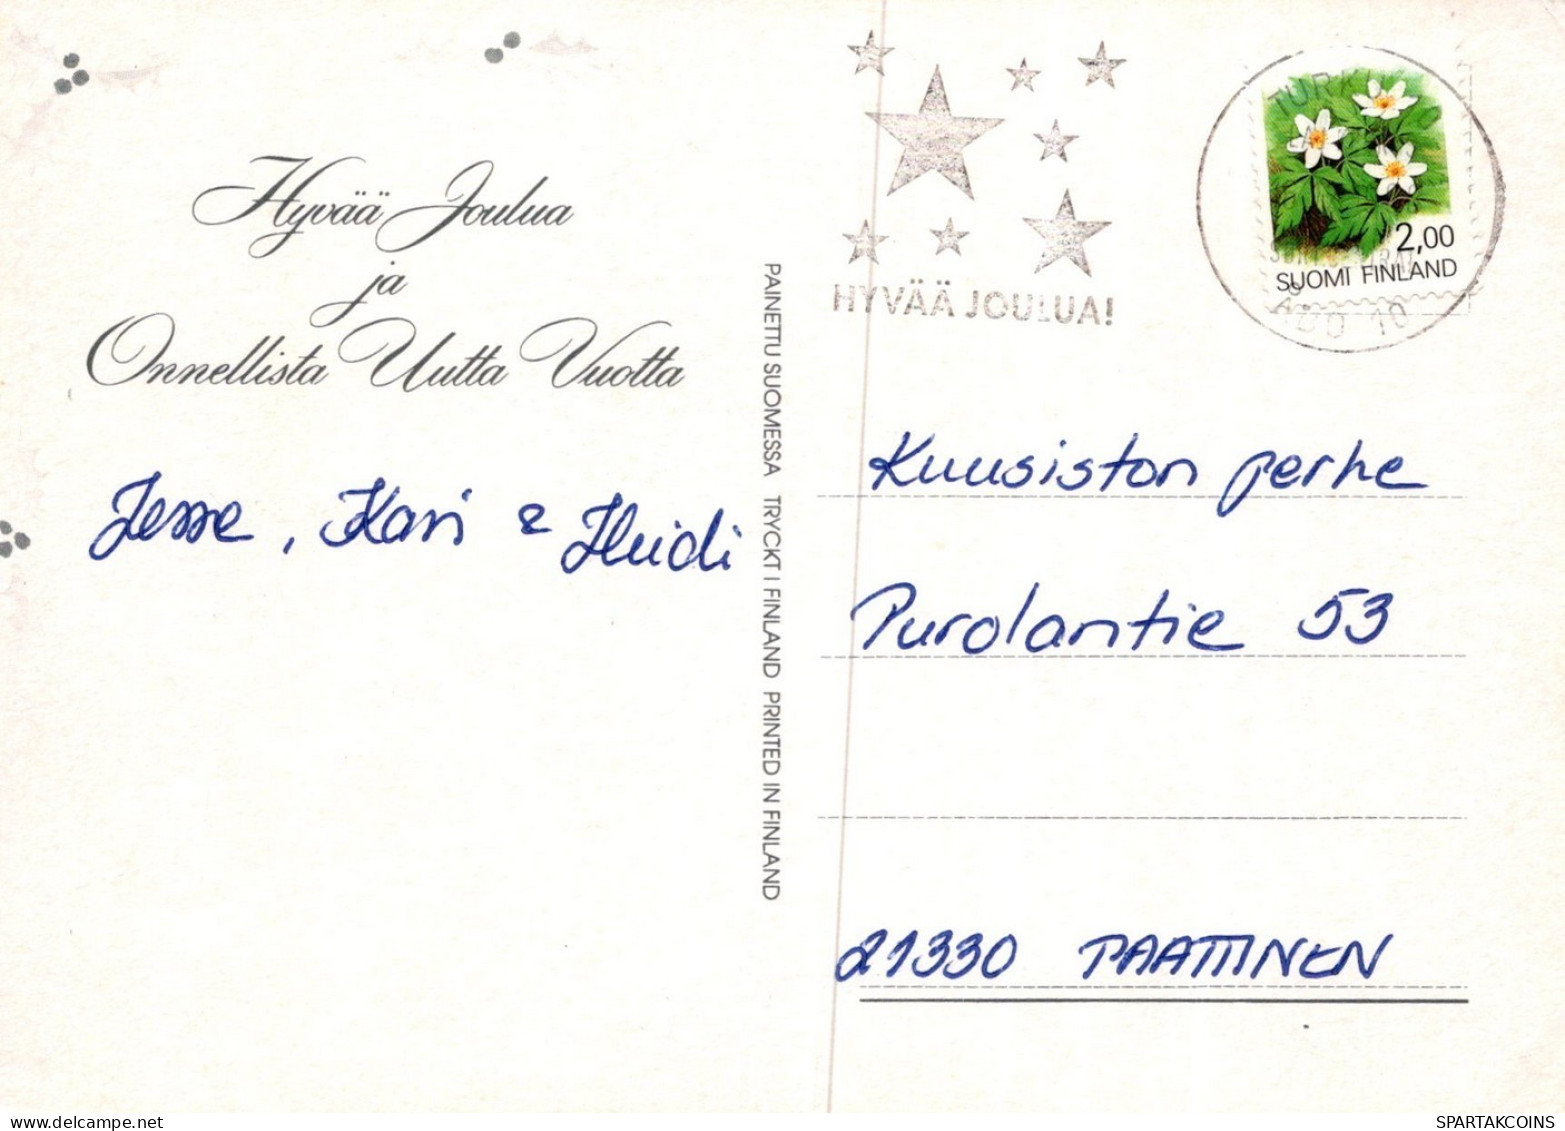 Hyvää Joulua
ja
Onnellista Uutta Vuotta
Jesse, Kari & Heidi
PAINETTU SUOMESSA TRYCKT I FINLAND PRINTED IN FINLAND
HYVÄÄ JOULUA!
TURKU
2,00
SUOMI FINLAND
ÅBO 10
Kuusiston perhe
Purolantie 53
21330 PAATTINEN
SPARTAKCOINS